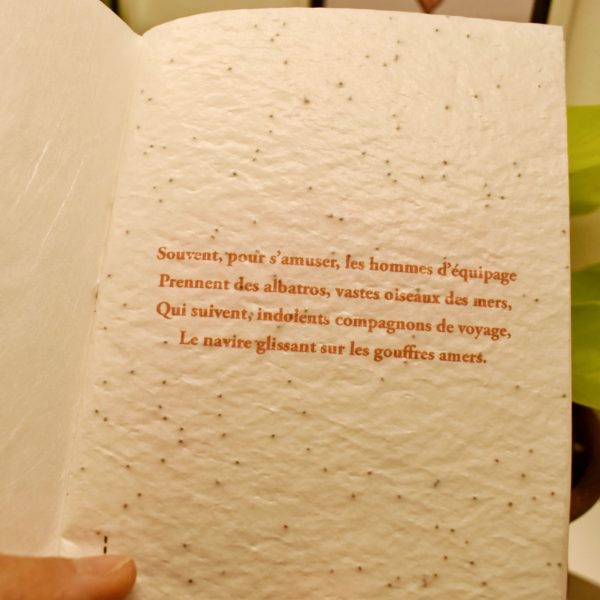 Souvent, pour s'amuser, les hommes d'équipage
Prennent des albatros, vastes oiseaux des mers,
Qui suivent, indolents compagnons de voyage,
Le navire glissant sur les gouffres amers.